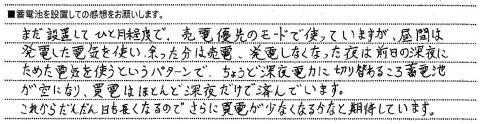 ■蓄電池を設置しての感想をお願いします。
まだ設置して ひと月程度で、売電優先のモードで使っていますが、昼間は
発電した電気を使い、余った分は売電、発電しなくなった夜は前日の深夜に
ためた電気を使うというパターンで、ちょうど深夜電力に切り替わるころ蓄電池
が空になり、買電はほとんど深夜だけで済んでいます。
これからだんだん日も長くなるのでさらに買電が少なくなるかなと期待しています。